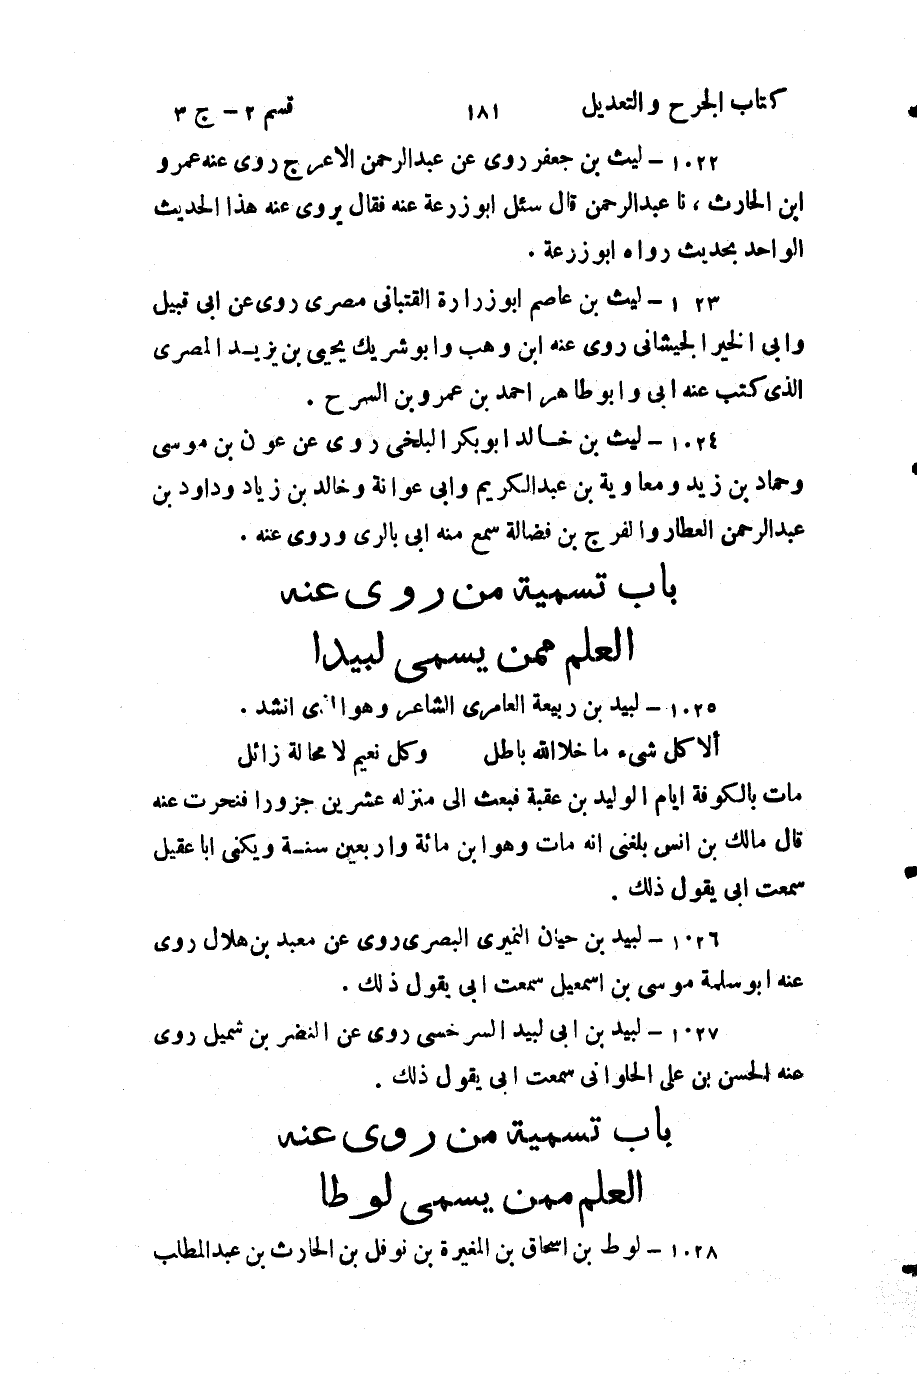 كتاب الجرح والتعديل ١٨١ قسم ٢ – ج ٣
١٠٢٢ – ليث بن جعفر روى عن عبدالرحمن الاعرج روى عنه عمرو
ابن الحارث ، نا عبدالرحمن قال سئل ابو زرعة عنه فقال يروى عنه هذا الحديث
الواحد بحديث رواه ابو زرعة .
١ ٢٣ – ليث بن عاصم ابو زرارة القتبانى مصرى روى عن ابى قبيل
وابى الخير الجيشانى روى عنه ابن وهب وابو شريك يحيى بن يزيد المصرى
الذى كتب عنه ابى وابو طاهر احمد بن عمرو بن السرح .
١٠٢٤ – ليث بن خالد ابو بكر البلخى روى عن عون بن موسى
وحماد بن زيد ومعاوية بن عبدالكريم وابى عوانة وخالد بن زياد وداود بن
عبدالرحمن العطار والفرج بن فضالة سمع منه ابى بالرى وروى عنه .
باب تسمية من روى عنه
العلم ممن يسمى لبيدا
١٠٢٥ – لبيد بن ربيعة العامرى الشاعر وهو الذى انشد .
ألا كل شىء ما خلا الله باطل وكل نعيم لا محالة زائل
مات بالكوفة ايام الوليد بن عقبة فبعث الى منزله عشرين جزورا فنحرت عنه
قال مالك بن انس بلغنى انه مات وهو ابن مائة واربعين سنة ويكنى ابا عقيل
سمعت ابى يقول ذلك .
١٠٢٦ – لبيد بن حيان النميرى البصرى روى عن معبد بن هلال روى
عنه ابو سلمة موسى بن اسمعيل سمعت ابى يقول ذلك .
١٠٢٧ – لبيد بن ابى لبيد السرخسى روى عن النضر بن شميل روى
عنه الحسن بن على الحلوانى سمعت ابى يقول ذلك .
باب تسمية من روى عنه
العلم ممن يسمى لوطا
١٠٢٨ – لوط بن اسحاق بن المغيرة بن نوفل بن الحارث بن عبدالمطلب